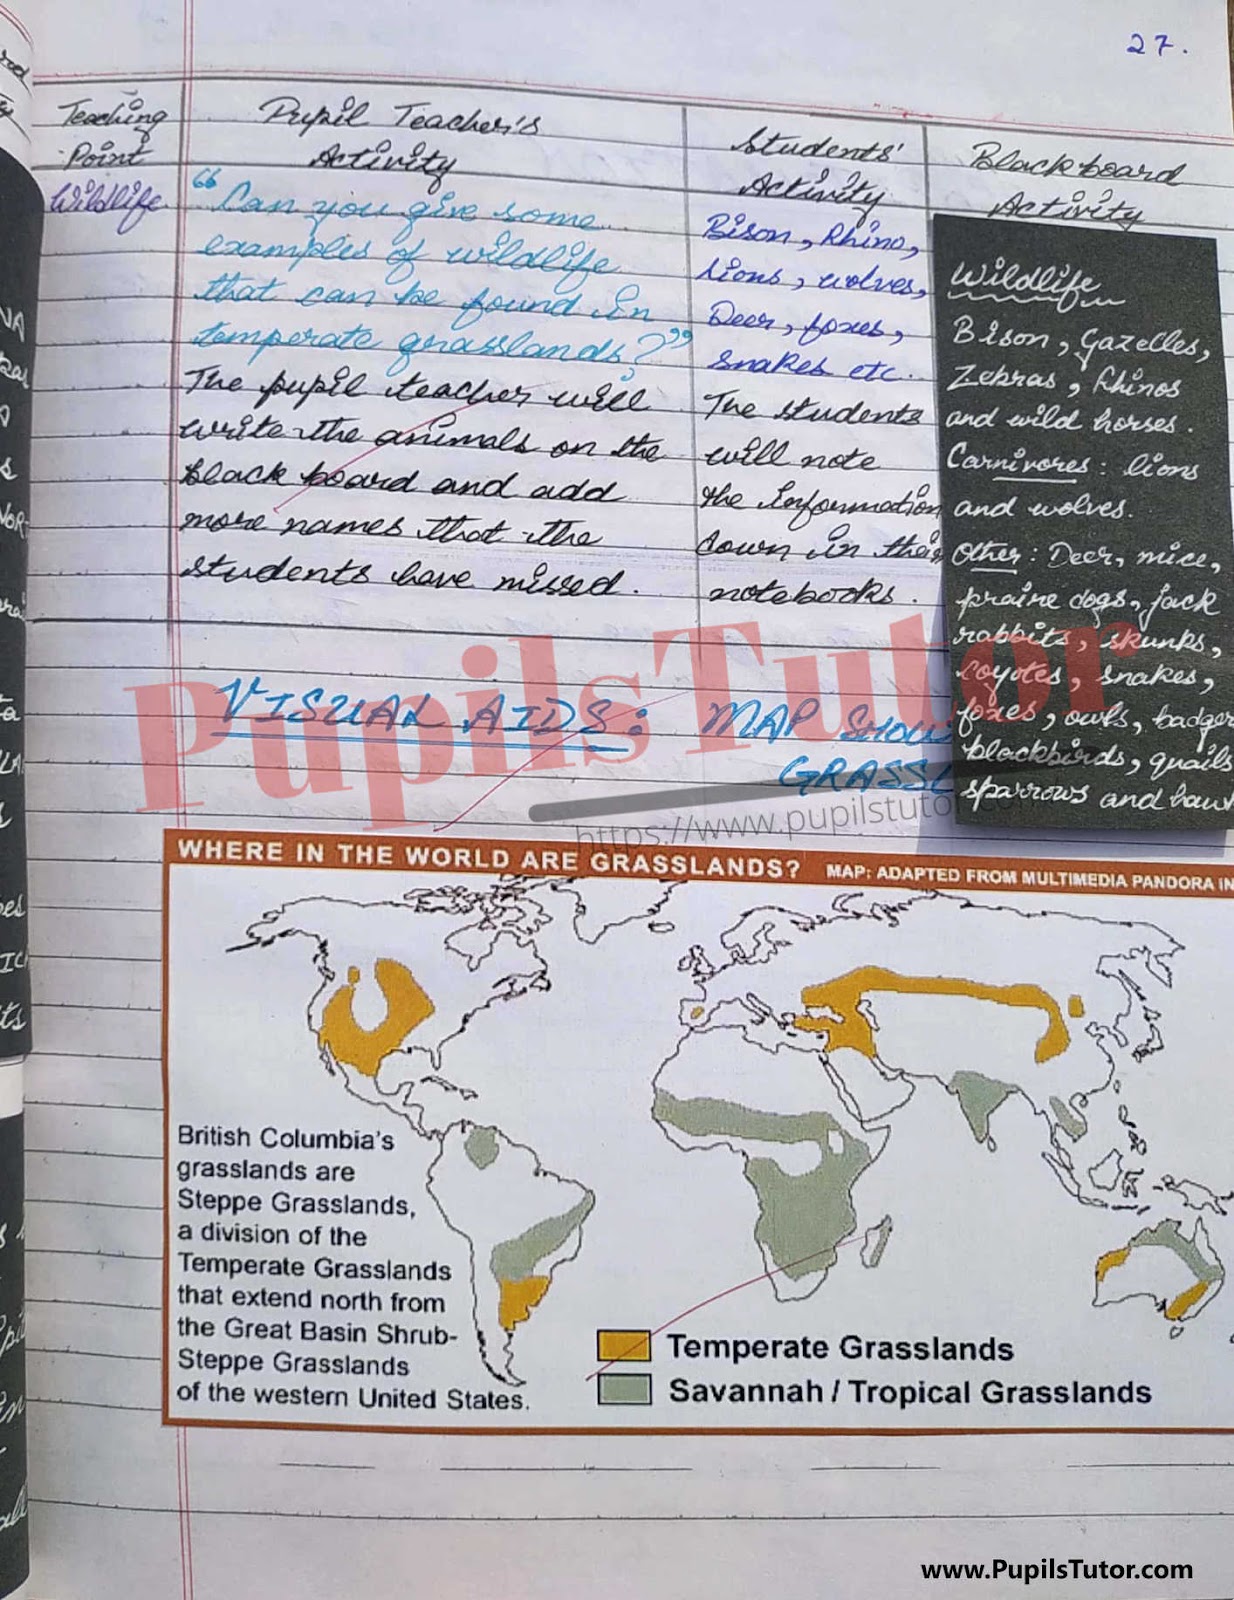 27.
Teaching
Point
Pupil Teacher's
Activity
Students'
Activity
Blackboard
Activity
Wildlife
"Can you give some
examples of wildlife
that can be found in
temperate grasslands?"
The pupil teacher will
write the animals on the
black board and add
more names that the
students have missed.
Bison, Rhino,
lions, wolves,
Deer, foxes,
snakes etc.
The students
will note
the information
down in their
notebooks.
Wildlife
Bison, Gazelles,
Zebras, Rhinos
and wild horses.
Carnivores: lions
and wolves.
Other: Deer, mice,
praire dogs, jack
rabbits, skunks,
coyotes, snakes,
foxes, owls, badger
blackbirds, quails
sparrows and haw
VISUAL AIDS: MAP SHOW
GRASSL
PupilsTutor
https://www.pupilstutor.com
WHERE IN THE WORLD ARE GRASSLANDS? MAP: ADAPTED FROM MULTIMEDIA PANDORA IN
British Columbia's
grasslands are
Steppe Grasslands,
a division of the
Temperate Grasslands
that extend north from
the Great Basin Shrub-
Steppe Grasslands
of the western United States.
Temperate Grasslands
Savannah / Tropical Grasslands
www.PupilsTutor.com